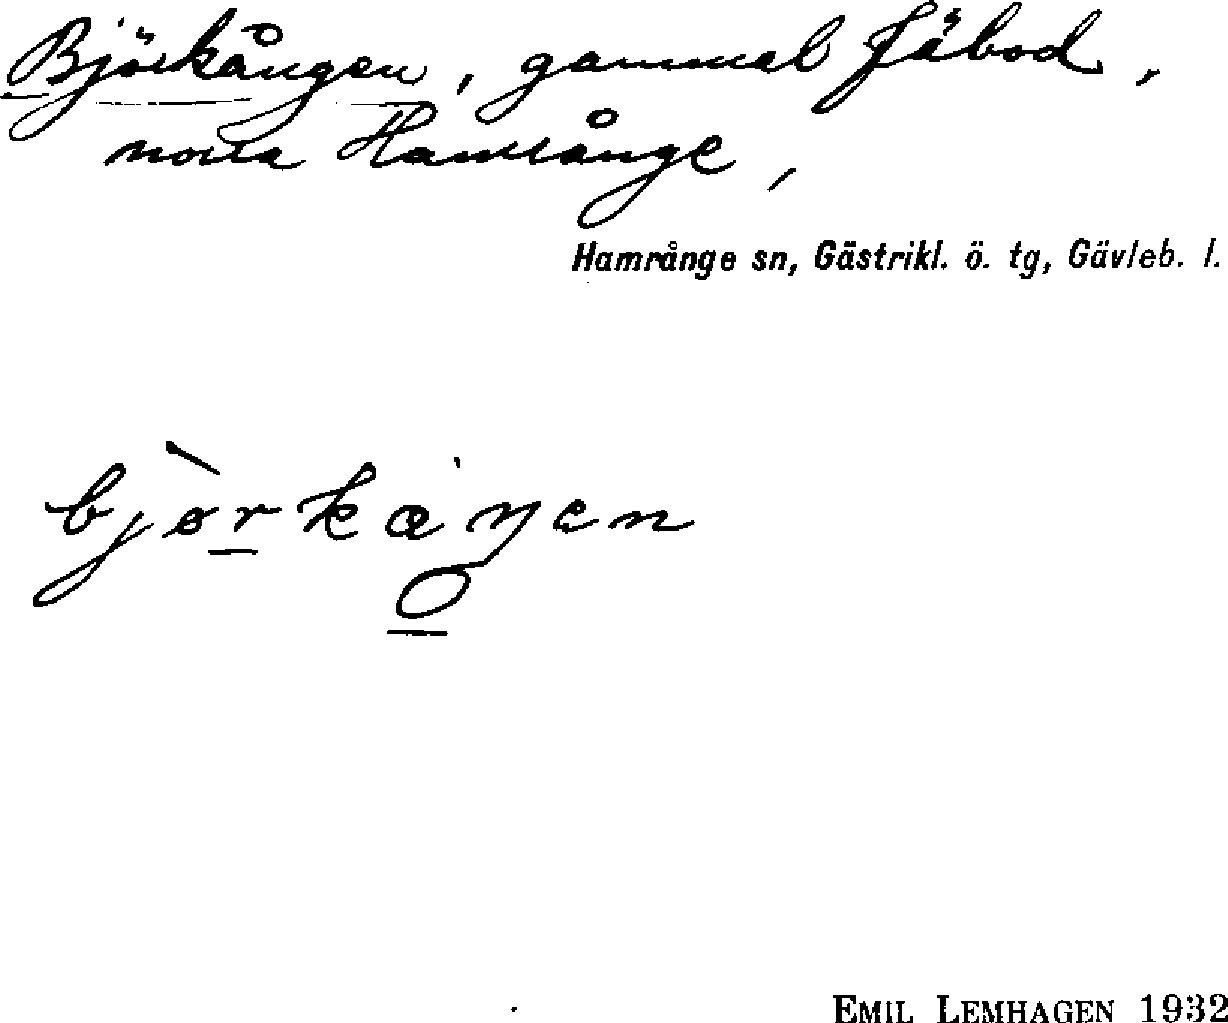 Björkången, gammal fäbod,
norra Hamrånge,
Hamrånge sn, Gästrikl. ö. tg, Gävleb. l.
EMIL LEMHAGEN 1932